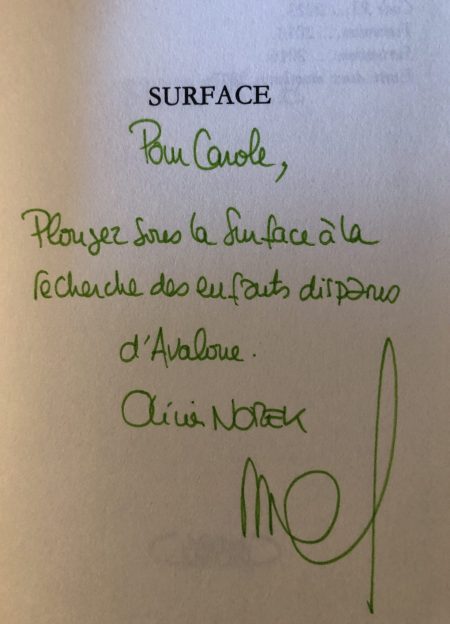 SURFACE
Pour Carole,
Plongez sous la surface à la
recherche des enfants disparus
d'Avalone.
Olivier NOREK